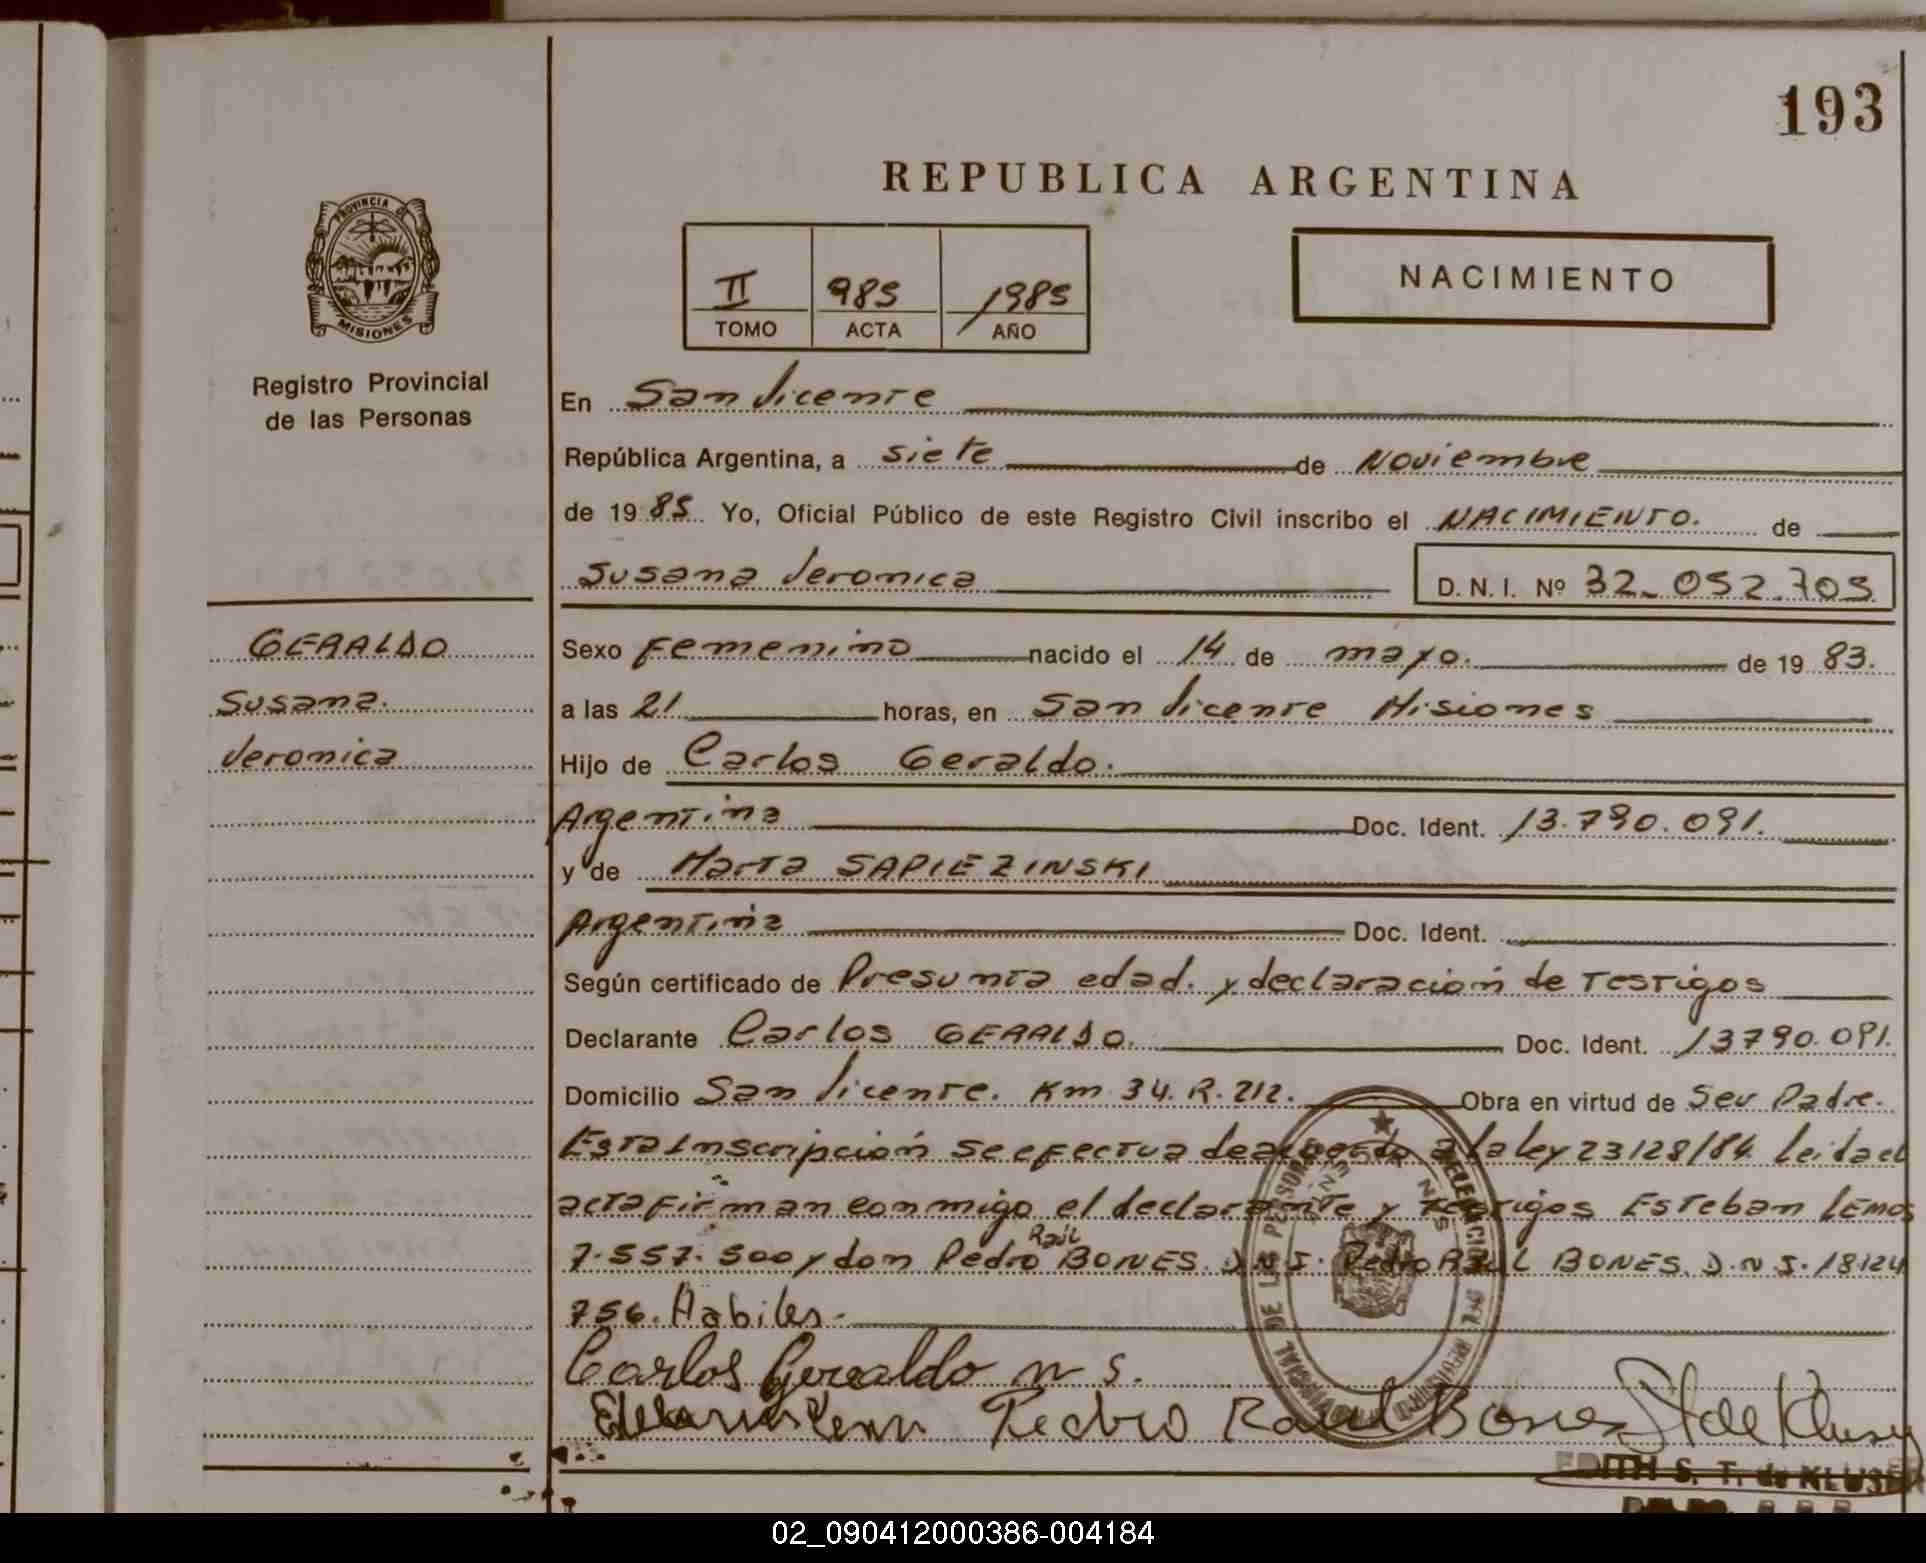 193
REPUBLICA ARGENTINA
PROVINCIA DE
MISIONES
Registro Provincial
de las Personas
II 985 1985
TOMO ACTA AÑO
NACIMIENTO
En San Vicente
República Argentina, a siete de Noviembre
de 1985 Yo, Oficial Público de este Registro Civil inscribo el NACIMIENTO. de
Susana Veronica D. N. I. Nº 32.052.705
GERALDO
Susana.
Veronica
Sexo Femenino nacido el 14 de mayo. de 1983.
a las 21 horas, en San Vicente Misiones
Hijo de Carlos Geraldo.
Argentina Doc. Ident. 13.790.091.
y de Marta SAPIEZINSKI
Argentina Doc. Ident.
Según certificado de Presunta edad. y declaración de Testigos
Declarante Carlos GERALDO. Doc. Ident. 13790.091.
Domicilio San Vicente. Km 34. R. 212. Obra en virtud de Ser Padre.
Esta Inscripción se efectua deacuerdo a la ley 23128/84. Leida el
acta firman conmigo el declarante y Testigos Esteban LEMOS
7.557.500 y don Pedro Raúl BONES. D.N.I. Pedro RAUL BONES. D.N.I. 18.124
756. Habiles.
Carlos Geraldo
Pedro Raul Bones
EDITH S. T. de KLUSE
02_090412000386-004184